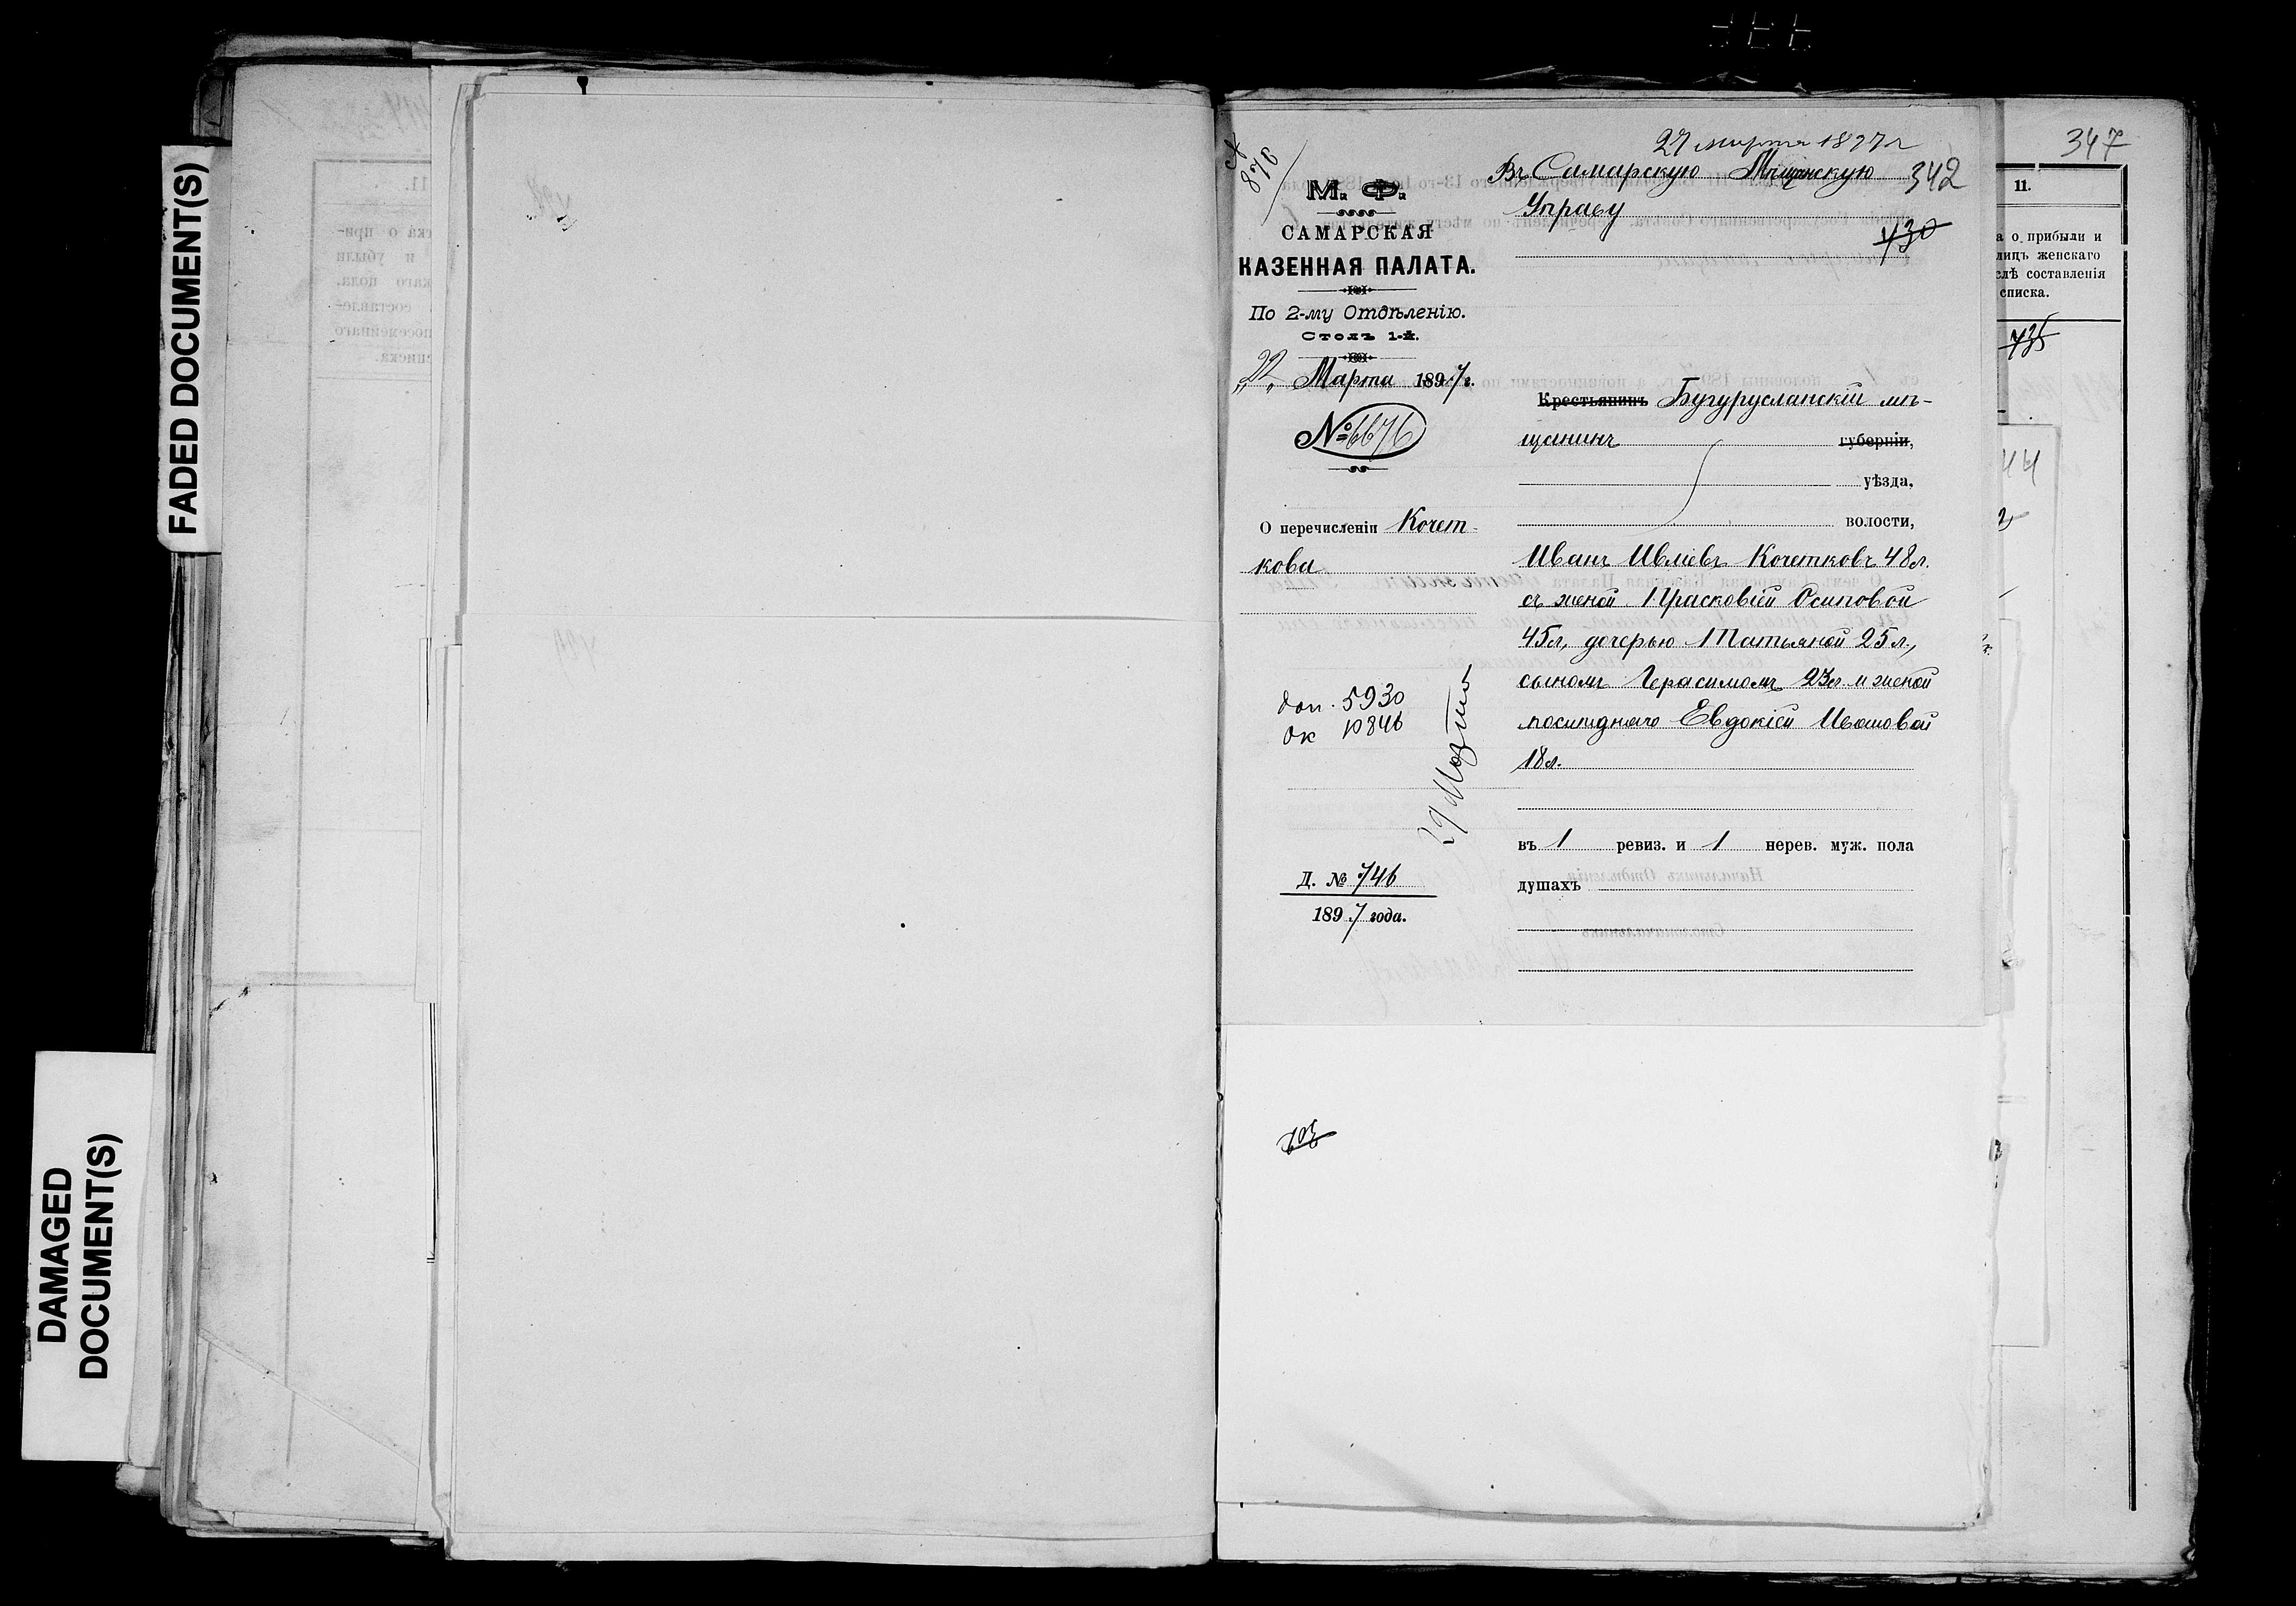 FADED DOCUMENT(S)
DAMAGED
DOCUMENT(S)
347
11.
а о прибыли и
лицъ женскаго
слѣ составленія
списка.
735
27 марта 1897 г
876
342
Въ Самарскую Мѣщанскую
Управу
430
М. Ф.
САМАРСКАЯ
КАЗЕННАЯ ПАЛАТА.
По 2-му Отдѣленію.
Столъ 1-й.
„22„ Марта 1897 г.
№ 6676
О перечисленіи Кочет-
кова
доп. 5930
ок 10846
Д. № 746
1897 года.
Крестьянинъ Бугурусланскій мѣ-
щанинъ губерніи,
уѣзда,
волости,
Иванъ Ивліевъ Кочетковъ 48 л.
съ женой Прасковіей Осиповой
45 л, дочерью Татьяной 25 л.,
сыномъ Герасимомъ 23 л. и женой
послѣдняго Евдокіей Ивановой
18 л.
въ 1 ревиз. и 1 нерев. муж. пола
душахъ